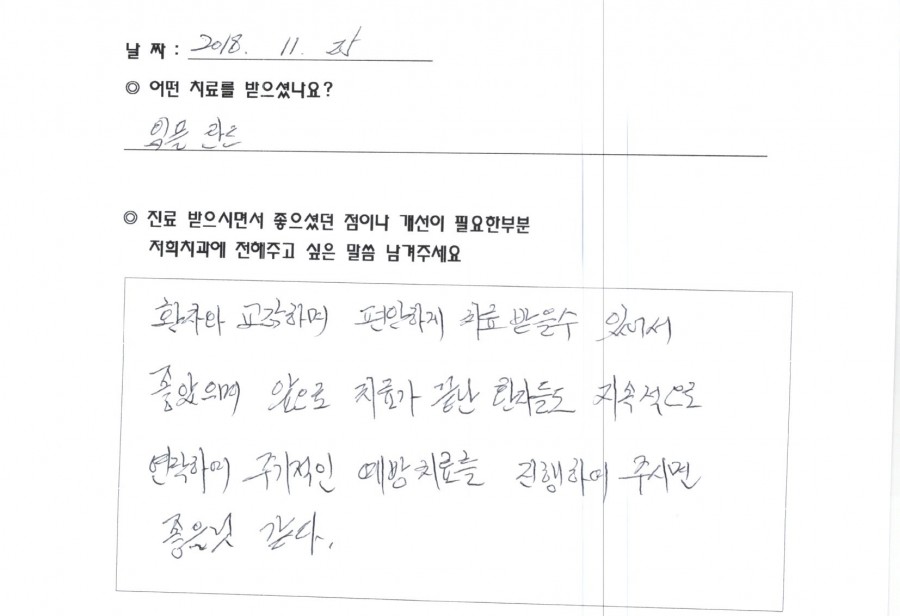 날 짜 : 2018. 11.
◎ 어떤 치료를 받으셨나요?
임플란트
◎ 진료 받으시면서 좋으셨던 점이나 개선이 필요한부분
저희치과에 전해주고 싶은 말씀 남겨주세요
환자와 교감하며 편안하게 치료 받을수 있어서
좋았으며 앞으로 치료가 끝난 환자들도 지속적으로
연락하여 주기적인 예방치료를 진행하여 주시면
좋을것 같다.